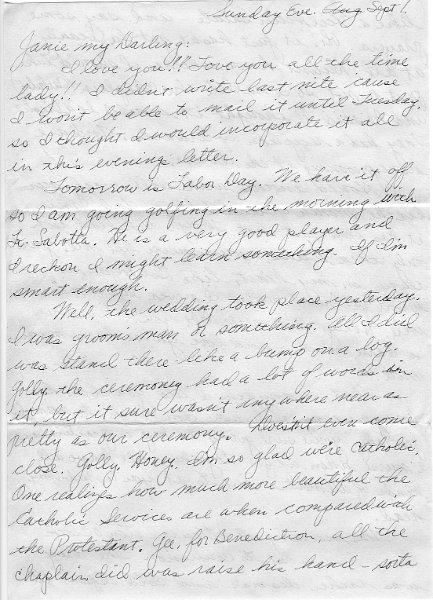 Sunday Eve. Aug Sept 1.
Janie my Darling:
I love you!! Love you all the time
lady!! I didn't write last nite 'cause
I won't be able to mail it until Tuesday.
so I thought I would incorporate it all
in this evening's letter.
Tomorrow is Labor Day. We have it off
so I am going golfing in the morning with
Lt. Sabotta. He is a very good player and
I reckon I might learn something. If I'm
smart enough.
Well, the wedding took place yesterday.
I was groom's man or something. All I did
was stand there like a bump on a log.
Golly the ceremoney had a lot of words in
it, but it sure wasn't anywhere near as
pretty as our ceremony. Doesn't even come
close. Golly, Honey. I'm so glad we're Catholic.
One realizes how much more beautiful the
Catholic Services are when compared with
the Protestant. Gee, for Benediction, all the
chaplain did was raise his hand - sorta